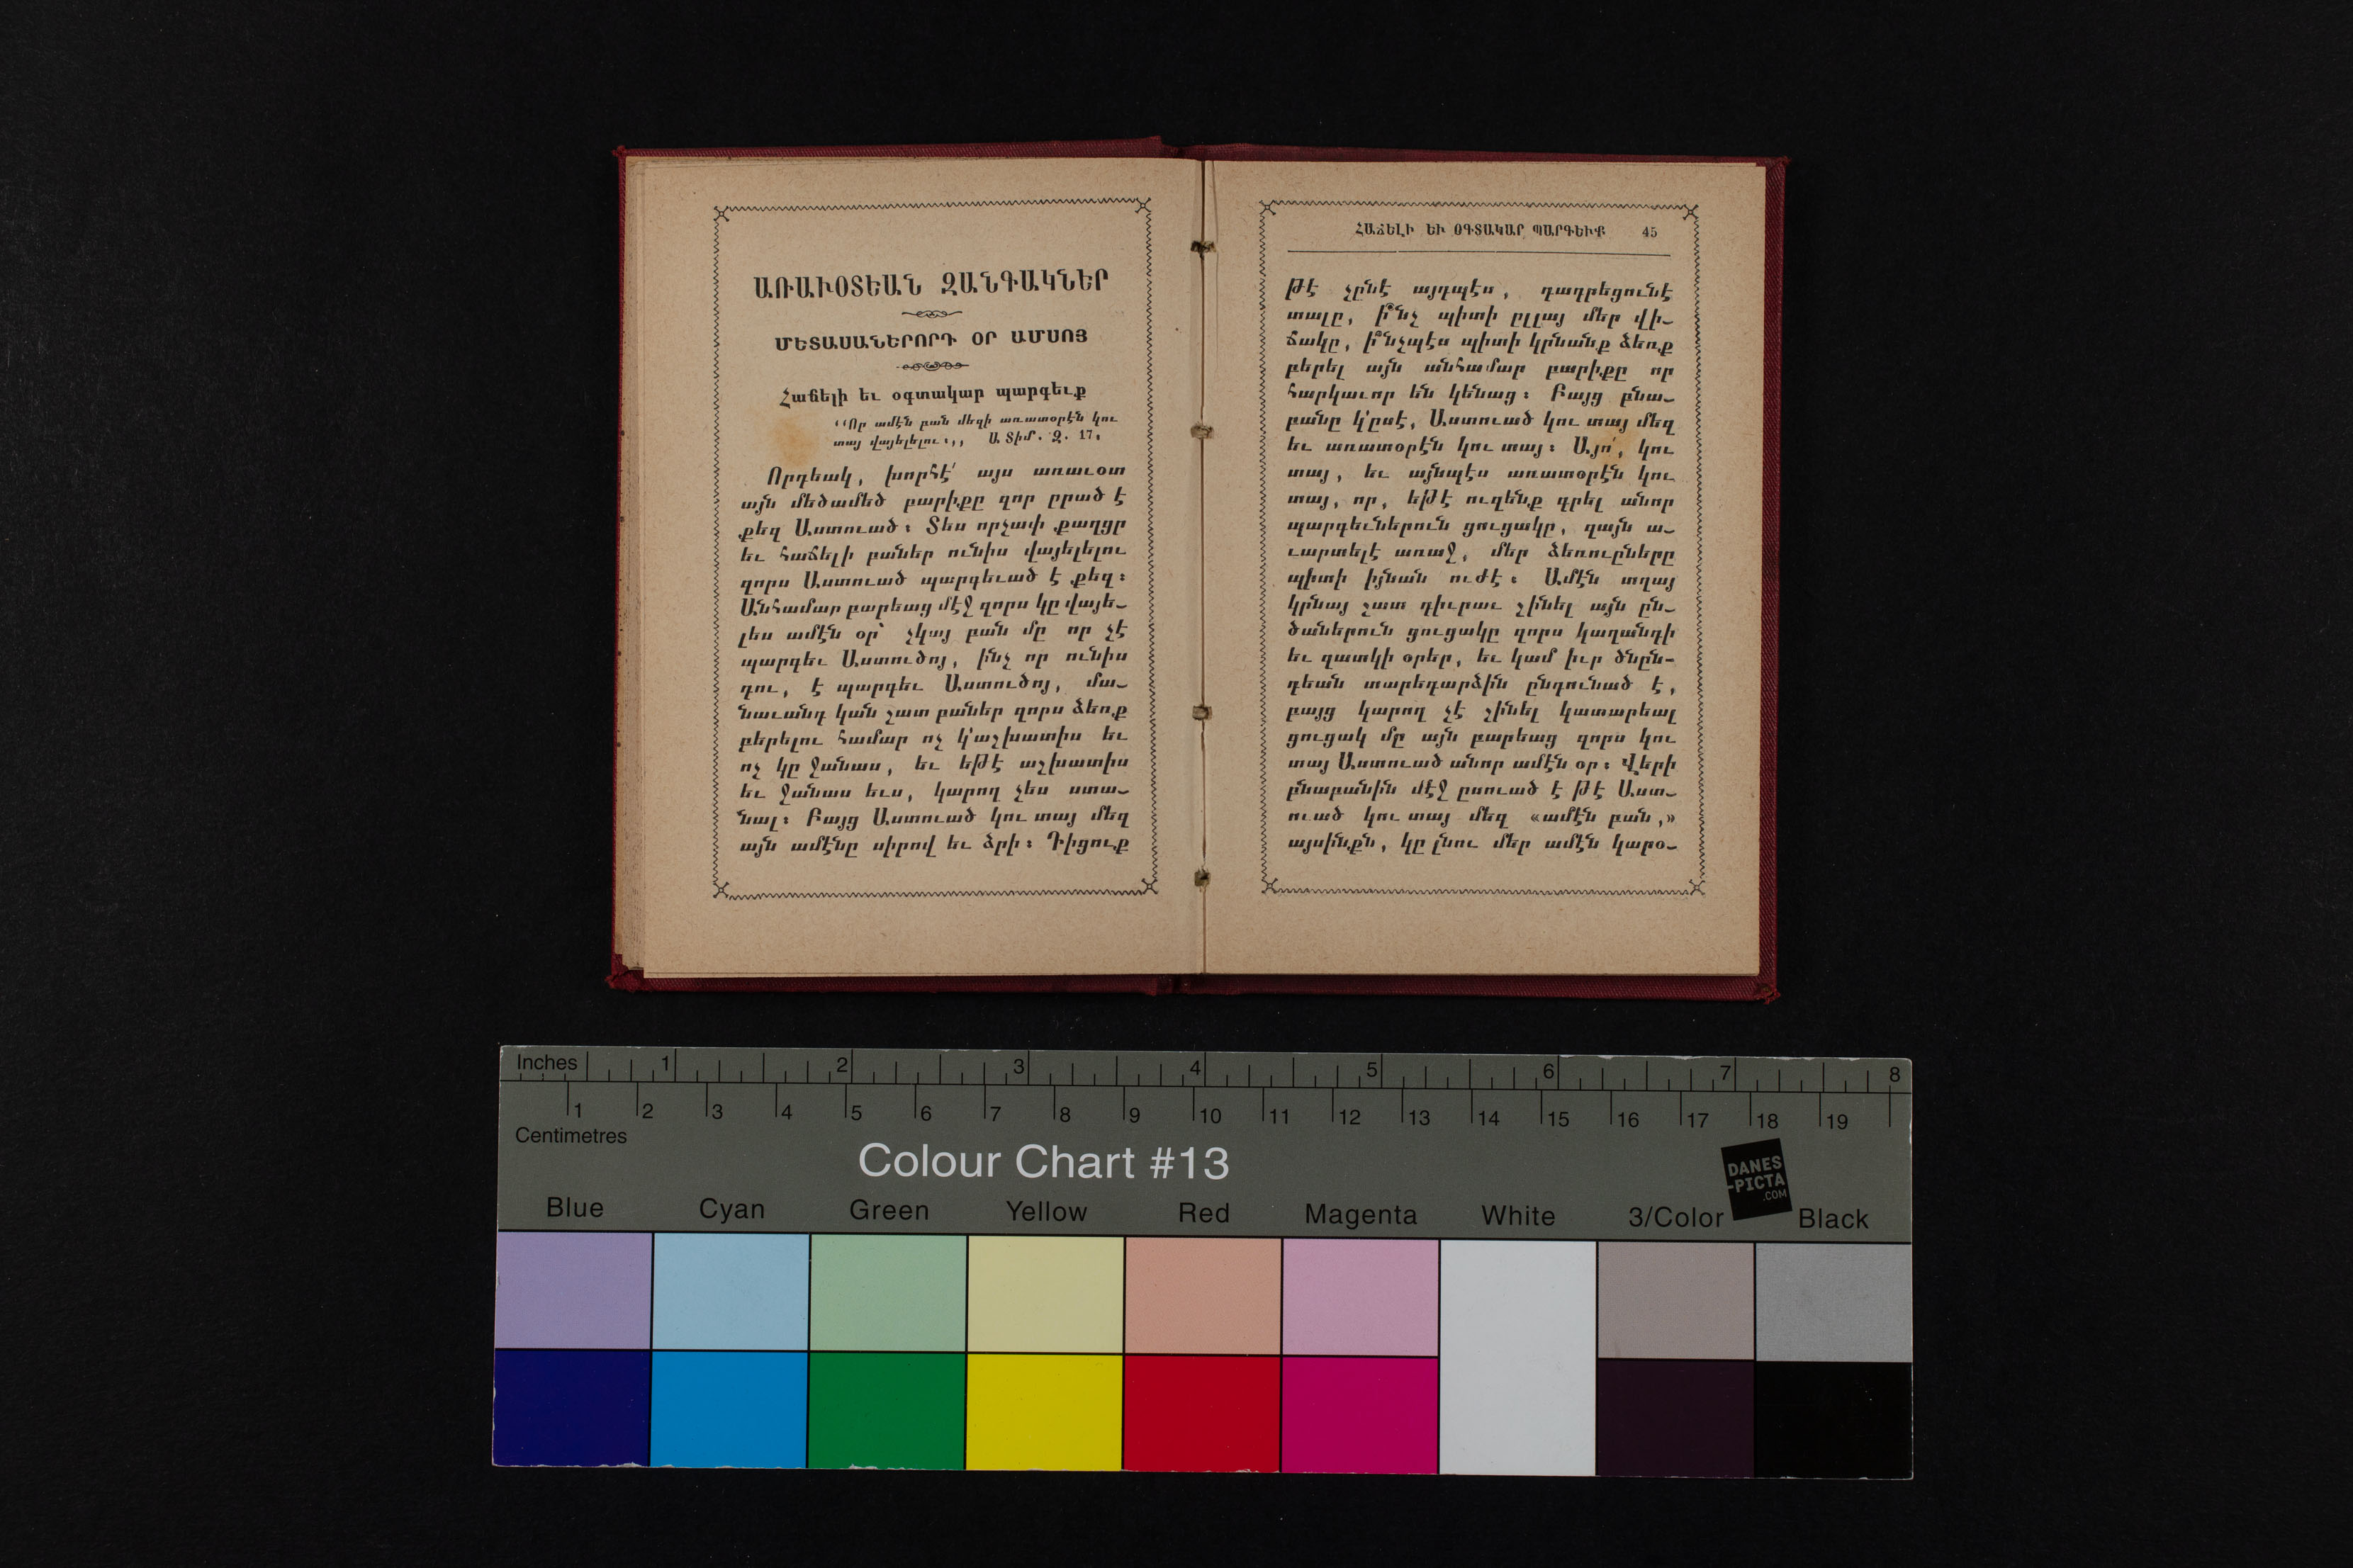 ԱՌԱՒՕՏԵԱՆ ԶԱՆԳԱԿՆԵՐ
ՄԵՏԱՍԱՆԵՐՈՐԴ ՕՐ ԱՄՍՈՅ
Հաճելի եւ օգտակար պարգեւք
‘‘Որ ամէն բան մեզի առատօրէն կու
տայ վայելելու։,, Ա. Տիմ. Զ. 17։
Որդեակ, խորհէ՛ այս առաւօտ
այն մեծամեծ բարիքը զոր ըրած է
քեզ Աստուած։ Տես որչափ քաղցր
եւ հաճելի բաներ ունիս վայելելու
զորս Աստուած պարգեւած է քեզ։
Անհամար բարեաց մէջ զորս կը վայե-
լես ամէն օր՝ չկայ բան մը որ չէ
պարգեւ Աստուծոյ, ինչ որ ունիս
դու, է պարգեւ Աստուծոյ, մա-
նաւանդ կան շատ բաներ զորս ձեռք
բերելու համար ոչ կ՚աշխատիս եւ
ոչ կը ջանաս, եւ եթէ աշխատիս
եւ ջանաս եւս, կարող չես ստա-
նալ։ Բայց Աստուած կու տայ մեզ
այն ամէնը սիրով եւ ձրի։ Դիցուք
ՀԱՃԵԼԻ ԵՒ ՕԳՏԱԿԱՐ ՊԱՐԳԵՒՔ 45
թէ չընէ այդպէս, դադրեցունէ
տալը, ի՞նչ պիտի ըլլայ մեր վի-
ճակը, ի՞նչպէս պիտի կրնանք ձեռք
բերել այն անհամար բարիքը որ
հարկաւոր են կենաց։ Բայց բնա-
բանը կ՚ըսէ, Աստուած կու տայ մեզ
եւ առատօրէն կու տայ։ Այո՛, կու
տայ, եւ այնպէս առատօրէն կու
տայ, որ, եթէ ուզենք գրել անոր
պարգեւներուն ցուցակը, զայն ա-
ւարտելէ առաջ, մեր ձեռուըները
պիտի իյնան ուժէ։ Ամէն տղայ
կրնայ շատ դիւրաւ շինել այն ըն-
ծաներուն ցուցակը զորս կաղանդի
եւ զատկի օրեր, եւ կամ իւր ծնըն-
դեան տարեդարձին ընդունած է,
բայց կարող չէ շինել կատարեալ
ցուցակ մը այն բարեաց զորս կու
տայ Աստուած անոր ամէն օր։ Վերի
բնաբանին մէջ ըսուած է թէ Աստ-
ուած կու տայ մեզ «ամէն բան,»
այսինքն, կը լնու մեր ամէն կարօ-
Inches 1 2 3 4 5 6 7 8
1 2 3 4 5 6 7 8 9 10 11 12 13 14 15 16 17 18 19
Centimetres
Colour Chart #13
DANES
-PICTA
.COM
Blue Cyan Green Yellow Red Magenta White 3/Color Black